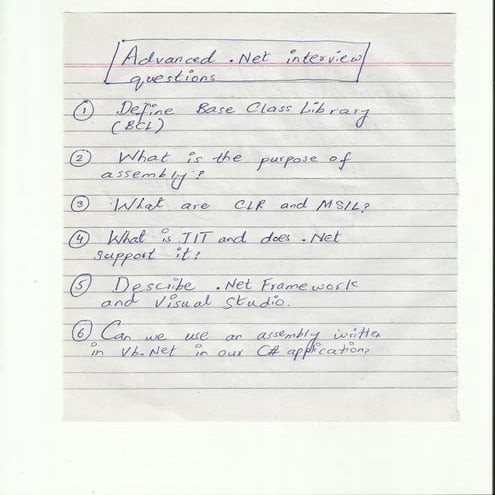 Advanced .Net interview
questions
① Define Base Class Library
(BCL)
② What is the purpose of
assembly?
③ What are CLR and MSIL?
④ What is JIT and does .Net
support it?
⑤ Describe .Net Framework
and Visual Studio.
⑥ Can we use an assembly written
in Vb.Net in our C# application?